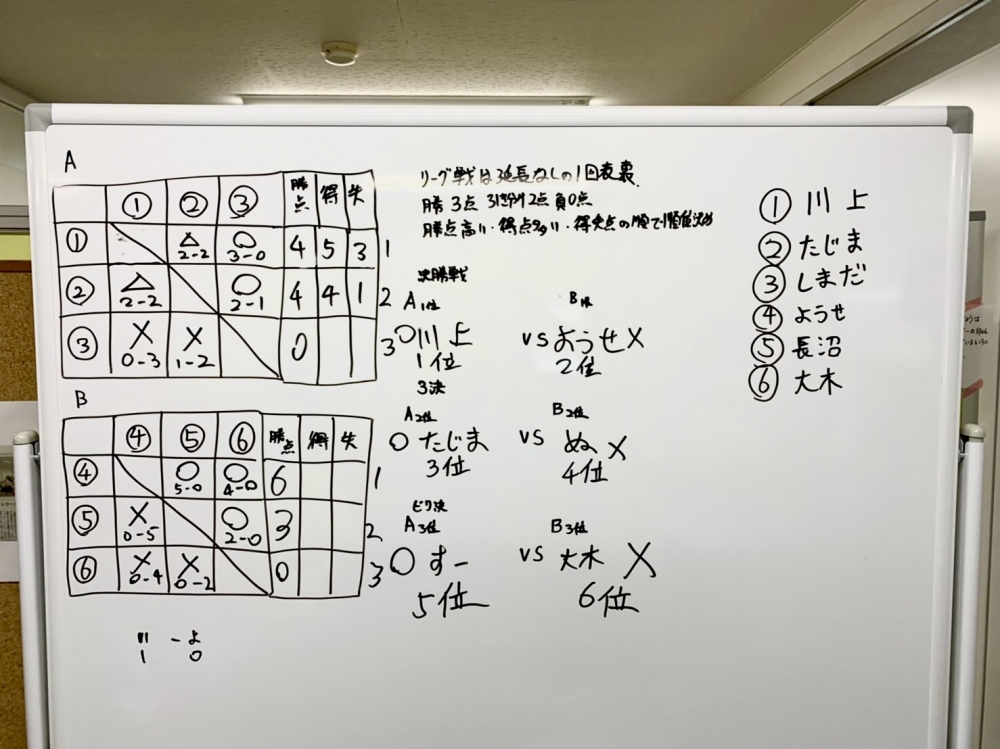 A
① ② ③ 勝点 得 失
① △ 2-2 ○ 3-0 4 5 3 1
② △ 2-2 ○ 2-1 4 4 1 2
③ × 0-3 × 1-2 0 3
B
④ ⑤ ⑥ 勝点 得 失
④ ○ 5-0 ○ 4-0 6 1
⑤ × 0-5 ○ 2-0 3 2
⑥ × 0-4 × 0-2 0 3
川 - よ
1 0
リーグ戦は延長なしの1回表裏
勝 3点 引き分け2点 負0点
勝点高い・得点多い・得失点の順で順位決め
決勝戦
A1位 B1位
○川上 vs ようせ×
1位 2位
3決
A2位 B2位
○たじま vs ぬ×
3位 4位
ビリ決
A3位 B3位
○すー vs 大木 ×
5位 6位
① 川上
② たじま
③ しまだ
④ ようせ
⑤ 長沼
⑥ 大木